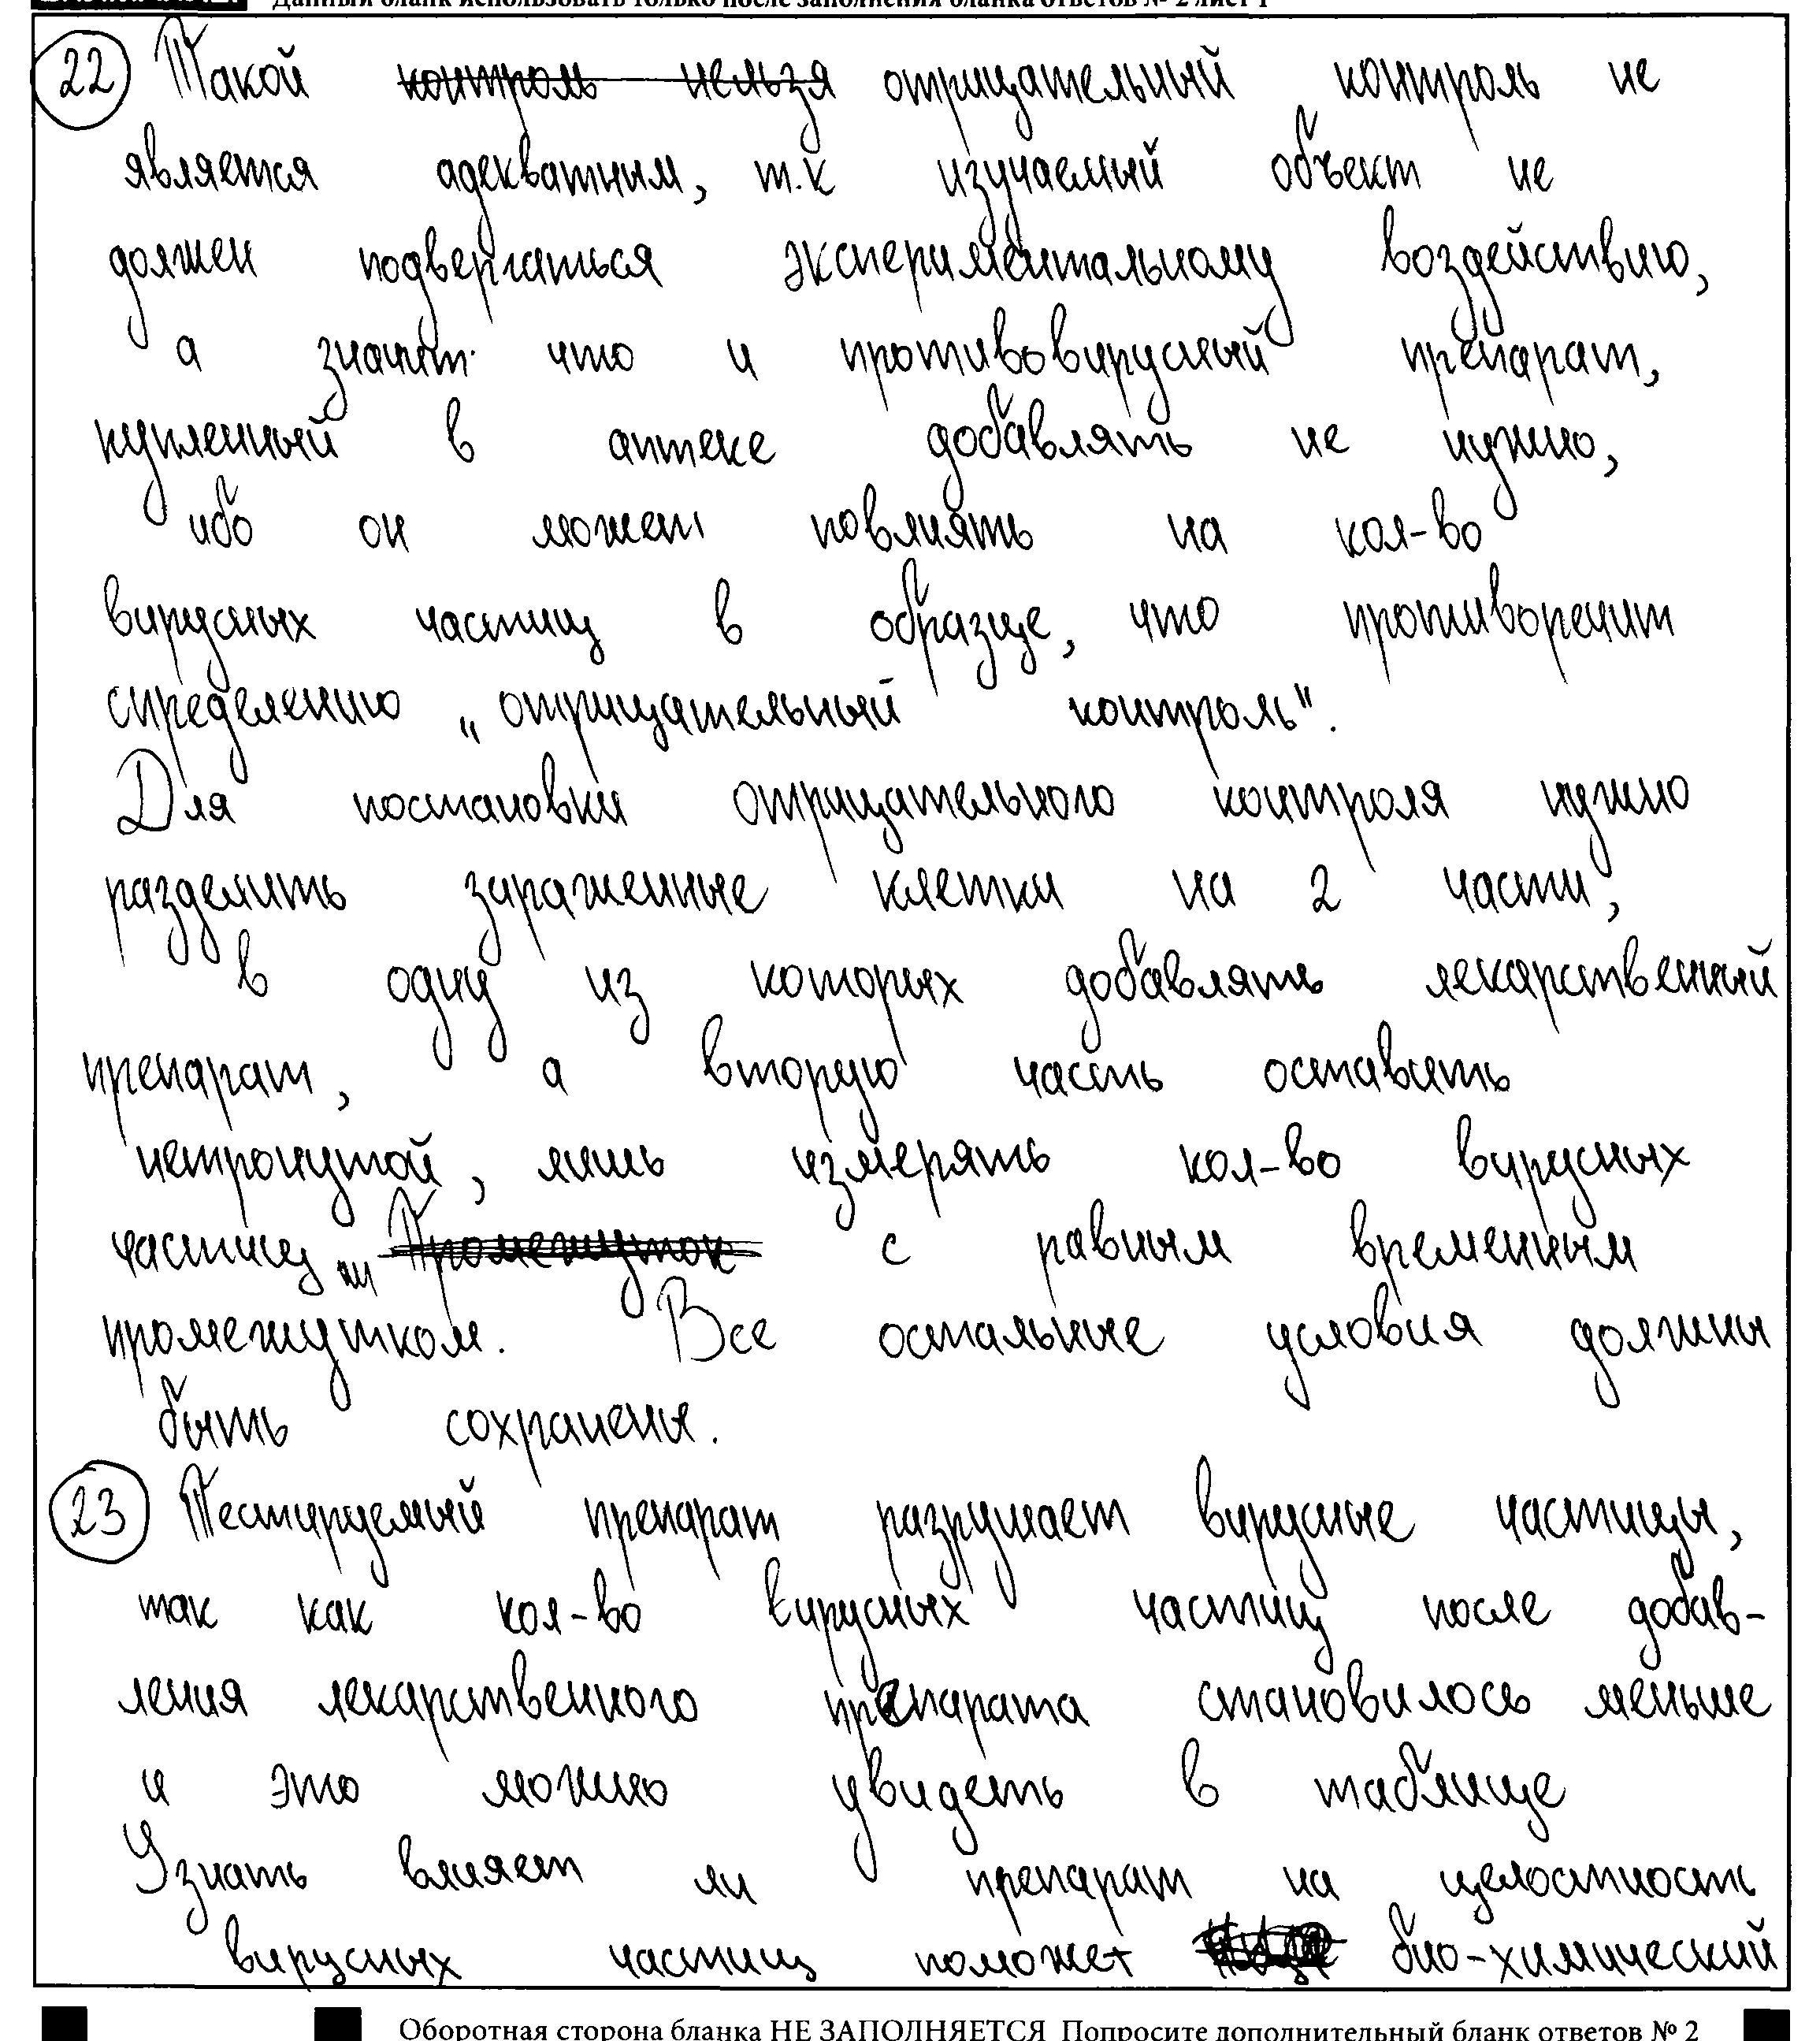 Данный бланк использовать только после заполнения бланка ответов № 2 лист 1
22 Такой контроль нельзя отрицательный контроль не
является адекватным, т.к изучаемый объект не
должен подвергаться экспериментальному воздействию,
а значит что и противовирусный препарат,
купленный в аптеке добавлять не нужно,
ибо он может повлиять на кол-во
вирусных частиц в образце, что противоречит
определению „отрицательный контроль".
Для постановки отрицательного контроля нужно
разделить зараженные клетки на 2 части,
в одну из которых добавлять лекарственный
препарат, а вторую часть оставить
нетронутой, лишь измерять кол-во вирусных
частиц Промежуток с равным временным
промежутком. Все остальные условия должны
быть сохранены.
23 Тестируемый препарат разрушает вирусные частицы,
так как кол-во вирусных частиц после добав-
ления лекарственного препарата становилось меньше
и это можно увидеть в таблице
Узнать влияет ли препарат на целостность
вирусных частиц поможет био-химический
Оборотная сторона бланка НЕ ЗАПОЛНЯЕТСЯ Попросите дополнительный бланк ответов № 2